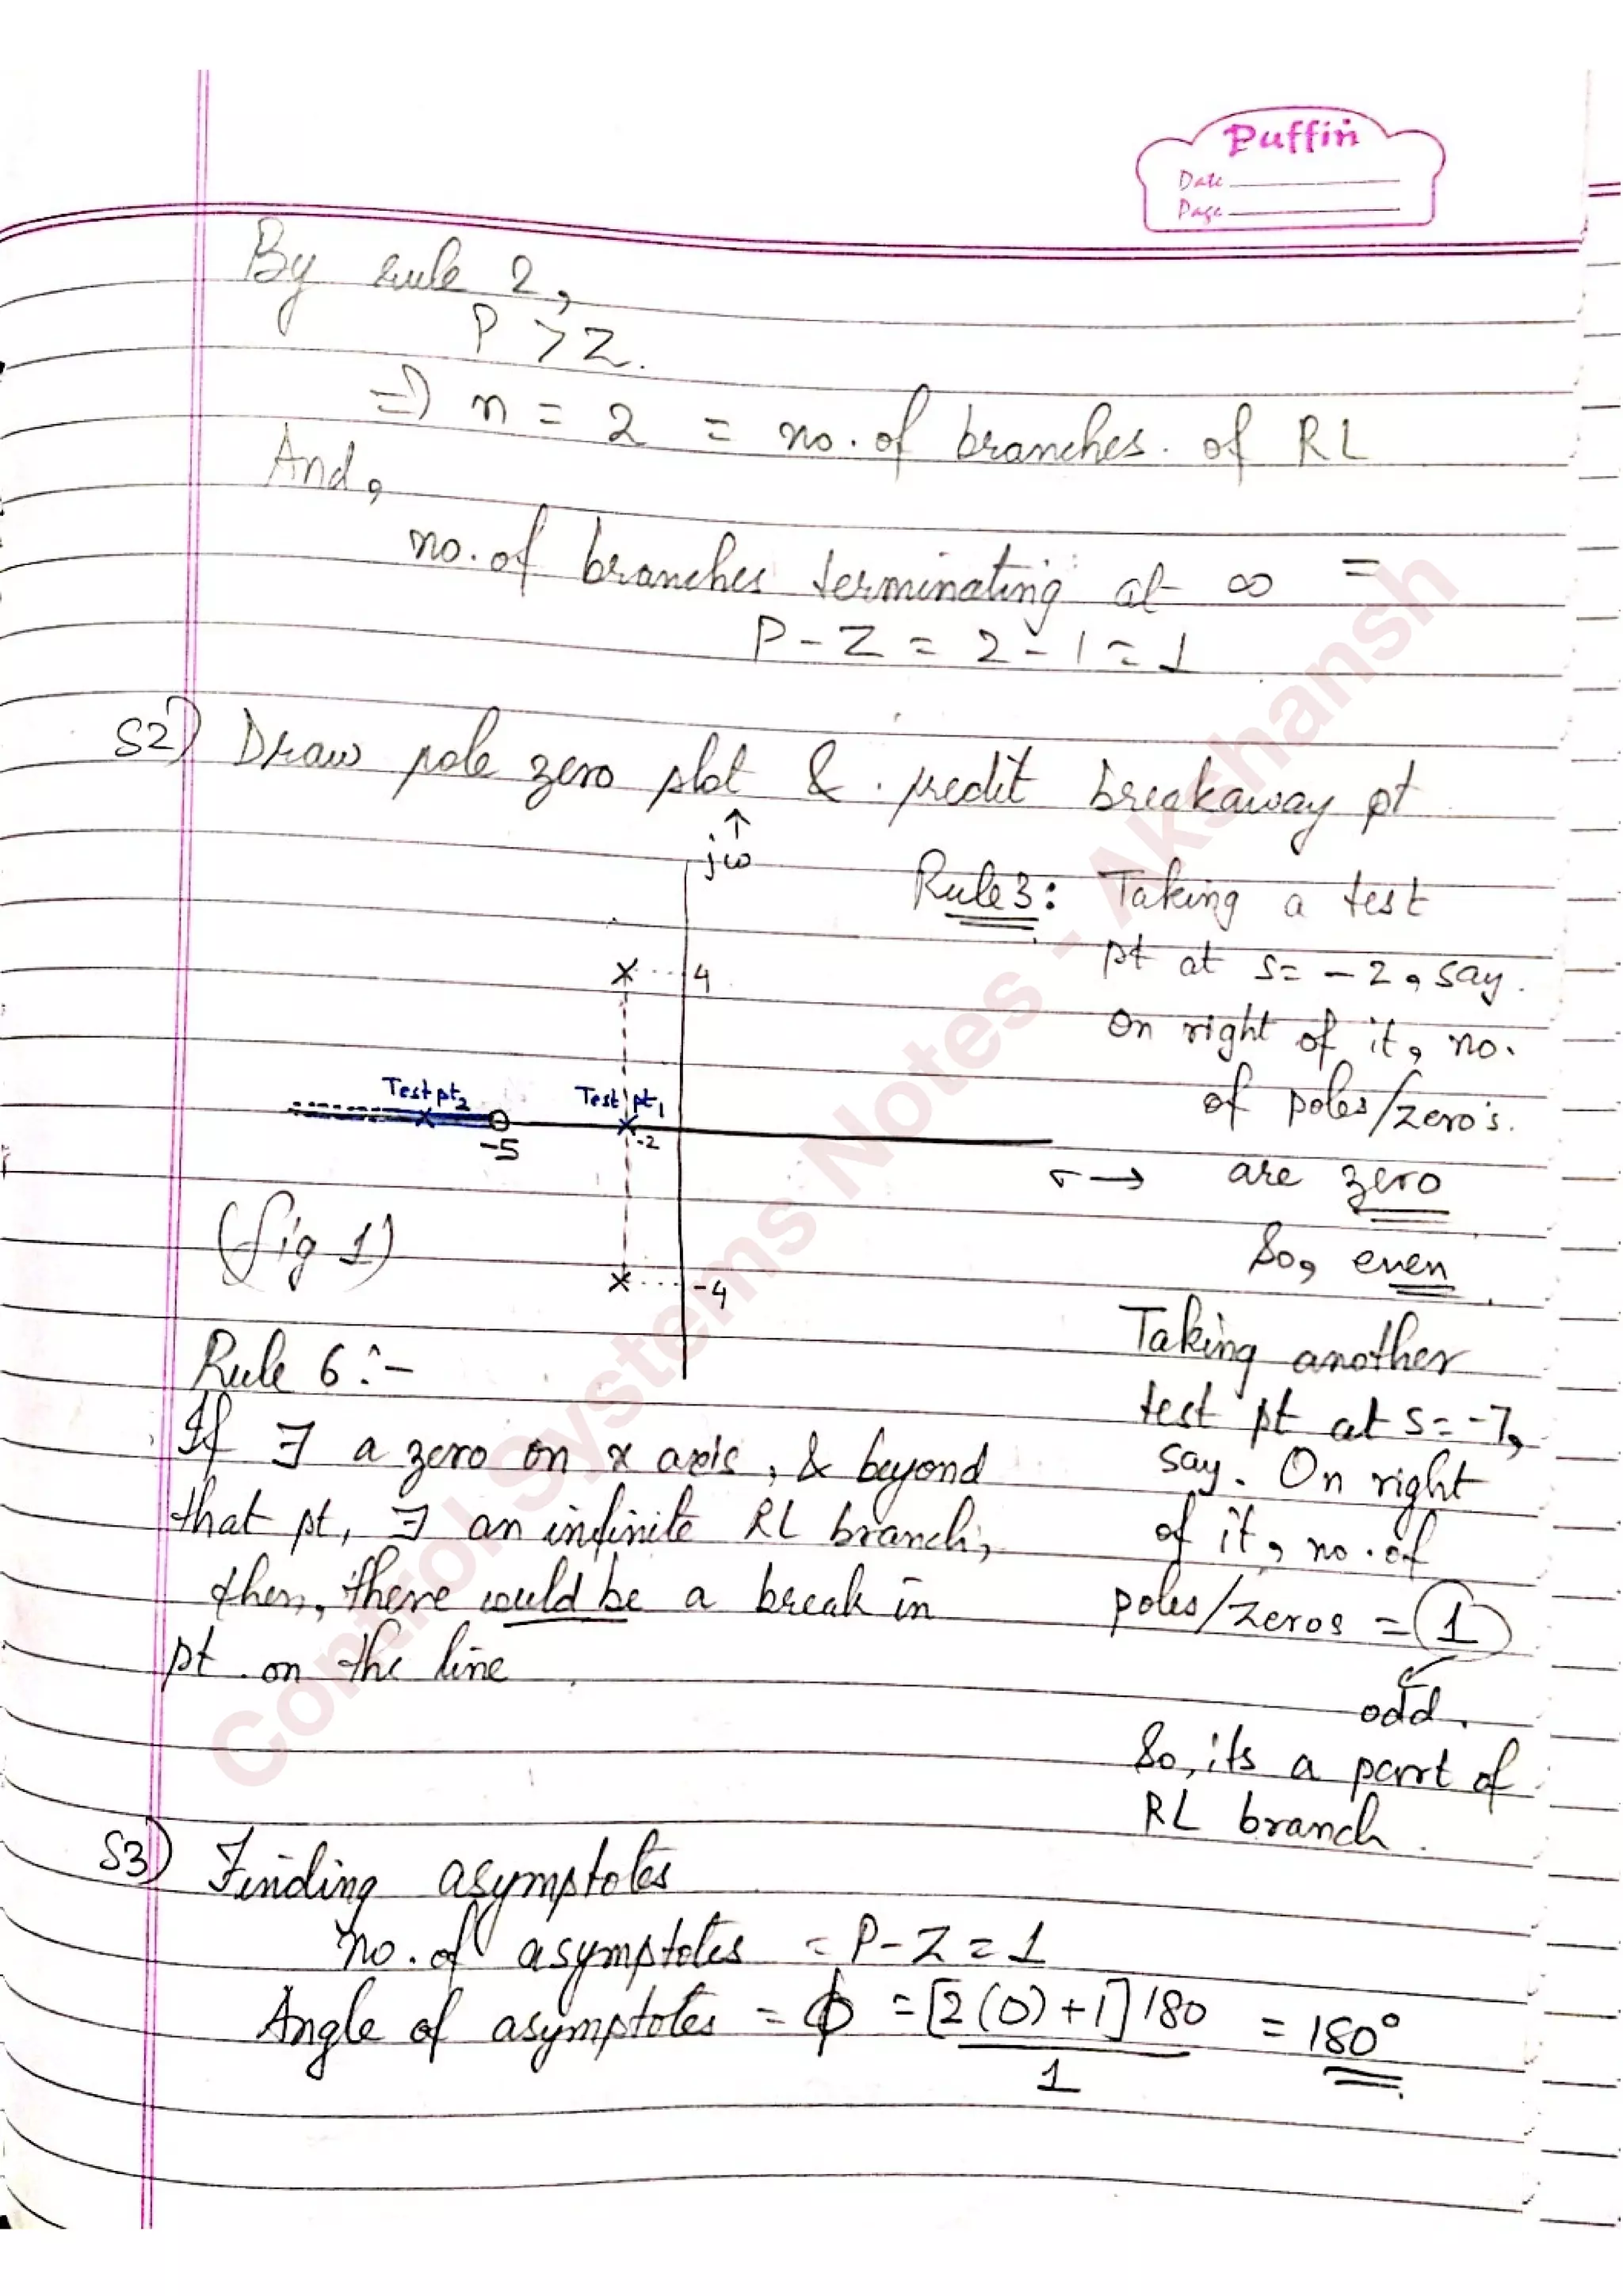 Puffin
Date
Page
By rule 2,
P > Z.
=) n = 2 = no. of branches. of RL
And,
no. of branches terminating at ∞ =
P - Z = 2 - 1 = 1
S2) Draw pole zero plot & predit breakaway pt
jω
Rule 3: Taking a test
pt at s= -2, say.
on right of it, no.
of poles/zero's.
are zero
So, even
4
Test pt2
Test pt1
-5
-2
σ →
-4
(fig 1)
Taking another
test pt at s= -7,
say. On right
of it, no. of
poles/zeros = 1
odd.
So, its a part of
RL branch.
Rule 6 :-
If ∃ a zero on x axis, & beyond
that pt, ∃ an infinite RL branch,
then, there would be a break in
pt. on the line
S3) Finding asymptotes
no. of asymptotes = P - Z = 1
Angle of asymptotes = ϕ = [2(0)+1]180 = 180°
1
Control Systems Notes - Akshansh